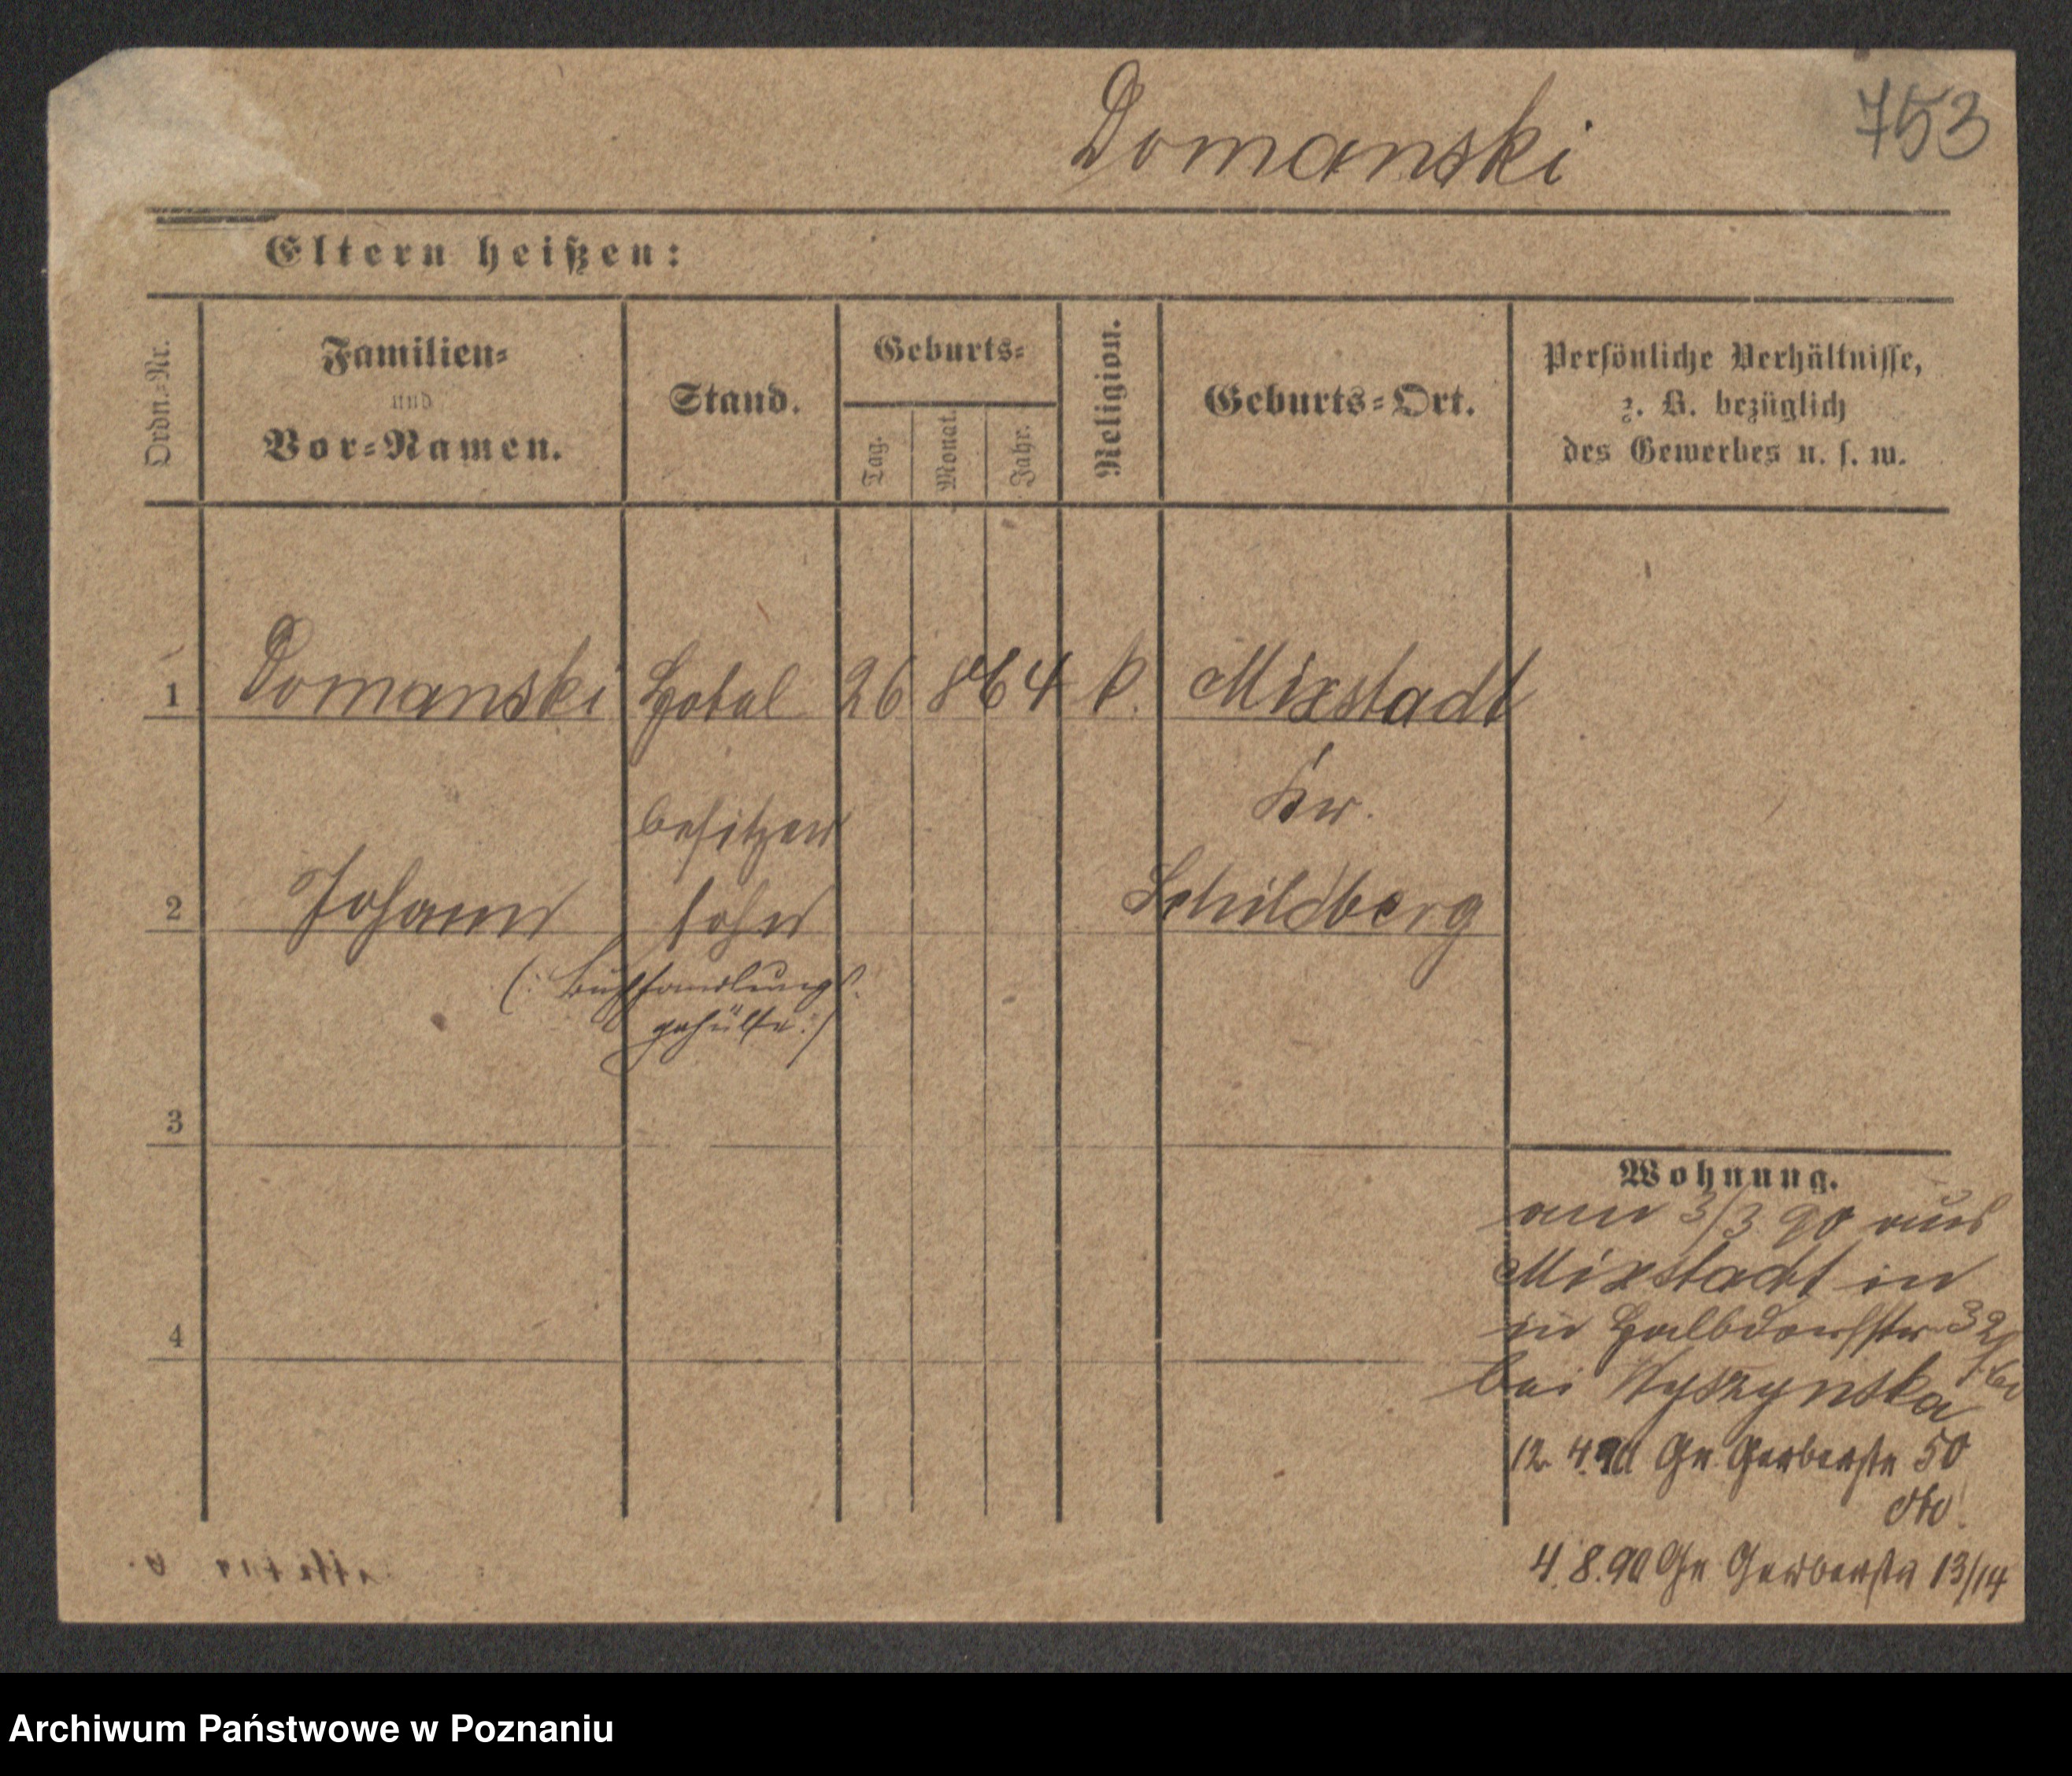 Domanski
753
Eltern heißen:
Ordn.=Nr.
Familien=
und
Vor=Namen.
Stand.
Geburts=
Tag.
Monat.
Jahr.
Religion.
Geburts=Ort.
Persönliche Verhältnisse,
z. B. bezüglich
des Gewerbes u. s. w.
1 Domanski Hotel 26 8 64 k. Mixstadt
besitzer Kr.
2 Johann sohn Schildberg
(: Buchhandlungs
gehülfe :)
3
Wohnung.
am 3/3 90 aus
Mixstadt in
in Halbdorfstr 32
bei Wyszynska
4
12 4. 90 Gr Gerberstr 50
4. 8. 90 Gr Gerberstr 13/14
Archiwum Państwowe w Poznaniu